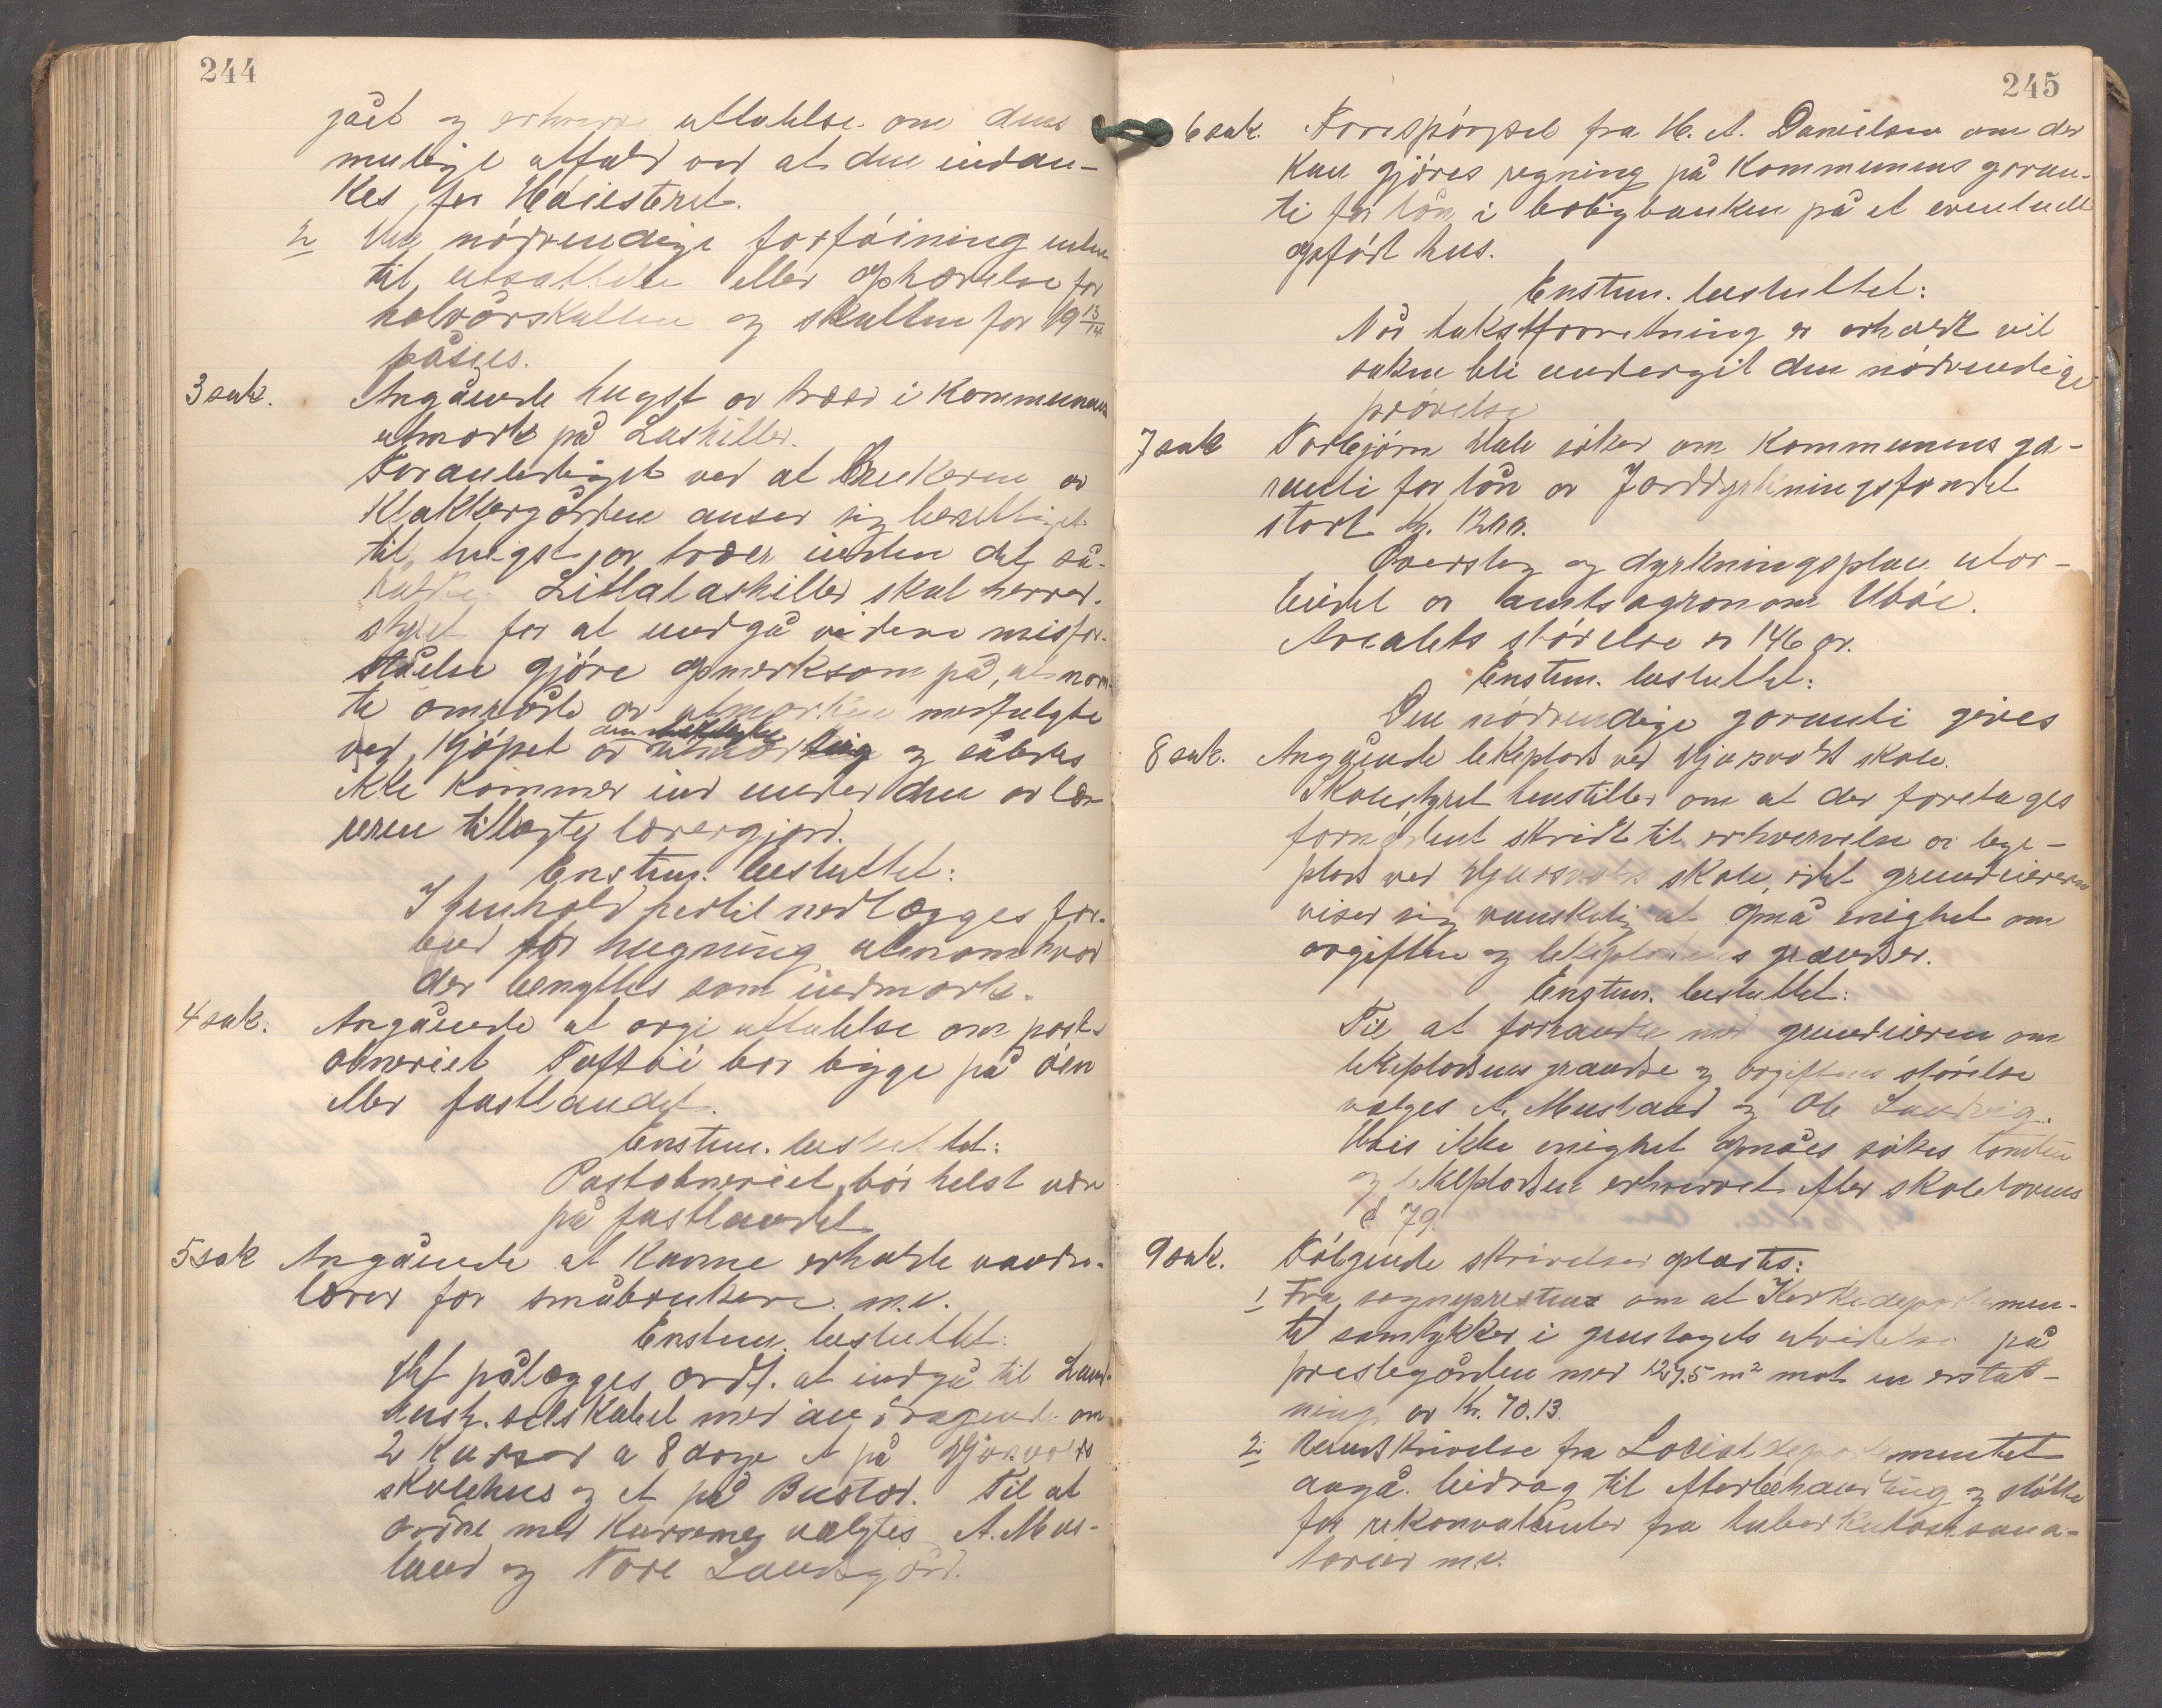 244
gået og erhverve uttalelse om dens
mulige utfald ved at den indan-
kes for Höiesteret.
2 nödvendige forföining uten
til utsættelse eller ophævelse for
halvårskatten og skatten for 19 13/14
påsees.
3 sak. Angående hugst av trær i kommunens
utmark på Laskiller.
Foranlediget ved at brukeren av
Klakkergården anser sig berettiget
til hugst av trær inden det så-
kaldte Litlalaskiller skal herred-
styret for at undgå videre misfor-
ståelse gjöre opmerksom på, at nevn-
te område av utmarken medfulgte
ved kjöpet av den og således
ikke kommer ind under den av læ-
reren tillagte lærergjord.
Enstem. besluttet:
I henhold hertil nedlægges for-
bud for hugning utenom hvad
der benyttes som indmark.
4 sak. Angående at avgi uttalelse om post-
åbneriet Toftöi bör ligge på öen
eller fastlandet.
Enstem. besluttet:
Postabneriet bör helst være
på fastlandet
5 sak Angående at kunne erholde vandre-
lærer for småbrukere m.v.
Enstem. besluttet:
pålægges ordf. at indgå til Land-
hush. selskabet med andragende om
2 kurser a 8 dage et på
skolehus og et på Bustad. Til at
ordne med kurserne valgtes A. Mus-
land og Tore Landsgård.
245
6 sak. Forespörgsel fra H. A. Danielsen om der
kan gjöres regning på kommunens garan-
ti for lån i boligbanken på et eventuelt
opfört hus.
Enstem. besluttet:
Når takstforretning er erholdt vil
saken bli undergit den nödvendige
prövelse
7 sak Torbjörn söker om kommunens ga-
ranti for lån av Jorddyrkningsfondet
stort Kr. 1200.
Overslag og dyrkningsplan utar-
beidet av amtsagronom Uböe.
Arealets störelse er 146 ar.
Enstem. besluttet:
Den nödvendige garanti gives
8 sak. Angående lekeplads ved skole.
Skolestyret henstiller om at der foretages
fornödent skridt til erhvervelse av lege-
plads ved skole, idet grundeieren
viser sig vanskelig at opnå enighet om
avgiften og lekepladsens grændser.
Enstem. besluttet:
Til at forhandle med grundeieren om
lekepladsens grændse og avgiftens störelse
valges A. Musland og Ole Landvig.
Hvis ikke enighet opnåes sökes tomten
og lekepladsen erhvervet efter skolelovens
§ 79.
9 sak. Fölgende skrivelser oplæstes:
1 Fra sognepresten om at Kirkedepartemen-
tet samtykker i grustagets utvidelse på
prestegården med 127.5 m² mot en erstat-
ning av Kr. 70.13.
2 Rundskrivelse fra Socialdepartementet
angå. bidrag til efterbehandling og stötte
for rekonvalenter fra tuberkulosesana-
torier m.v.